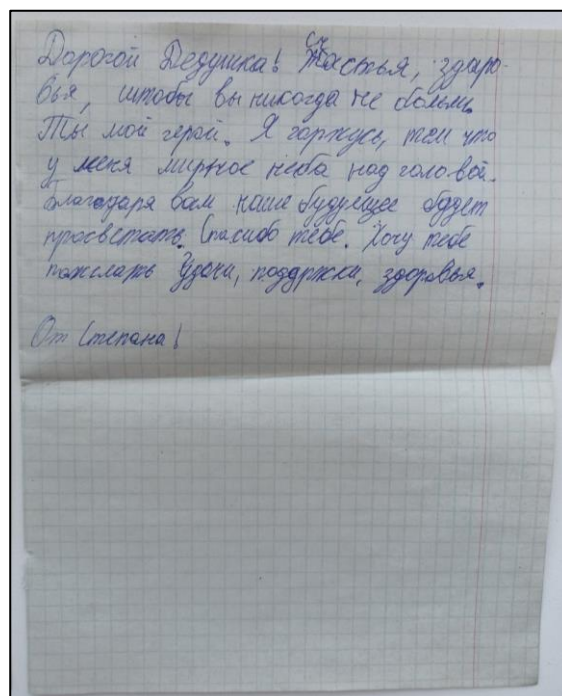 Дорогой Дедушка! Счастья, здаро-
вья, штобы вы никогда не болели.
Ты мой герой. Я горжусь, тем что
у меня мирное неба над головой.
Благодаря вам наше будующее будет
просветать. Спасибо тебе. Хочу тебе
пожелать Удачи, поддржки, здоровья.
От Степана!